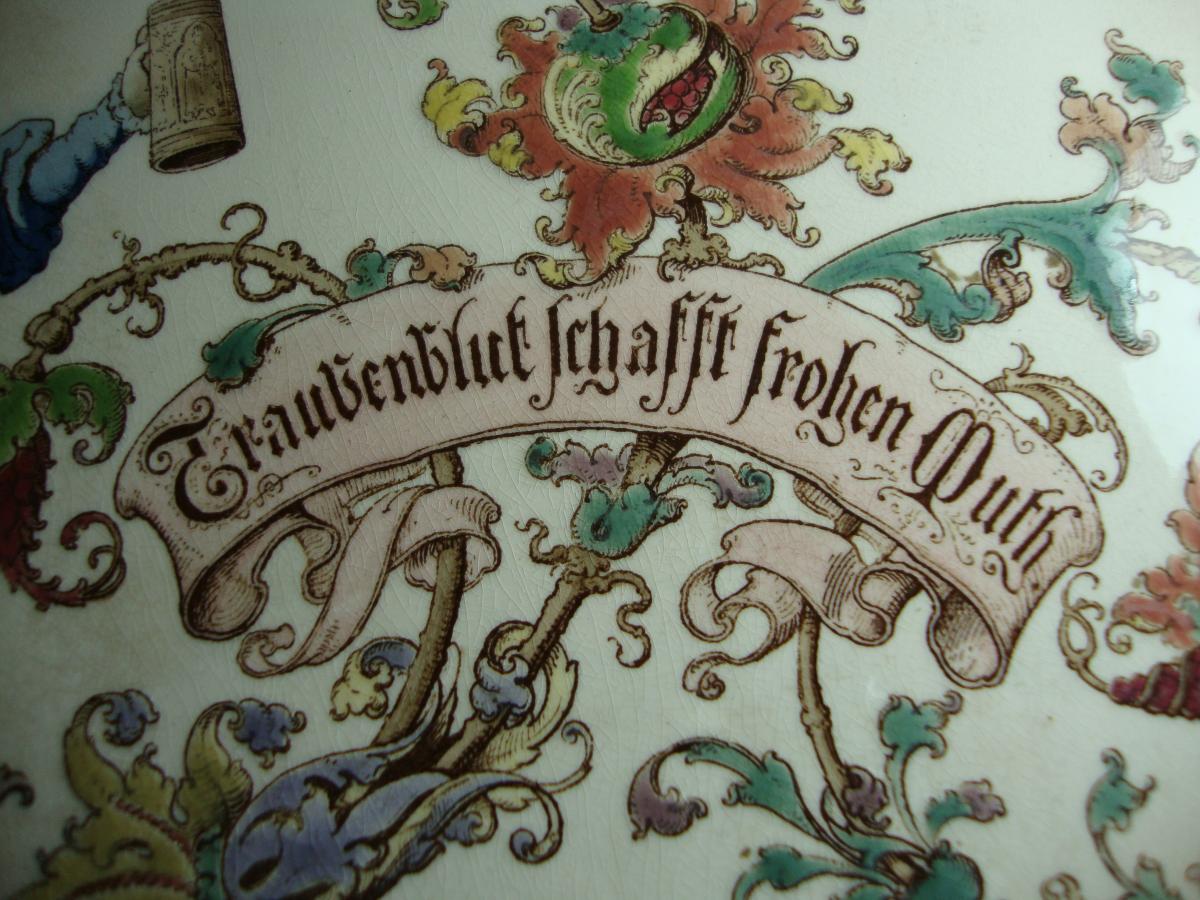 Traubenblut schafft frohen Muth